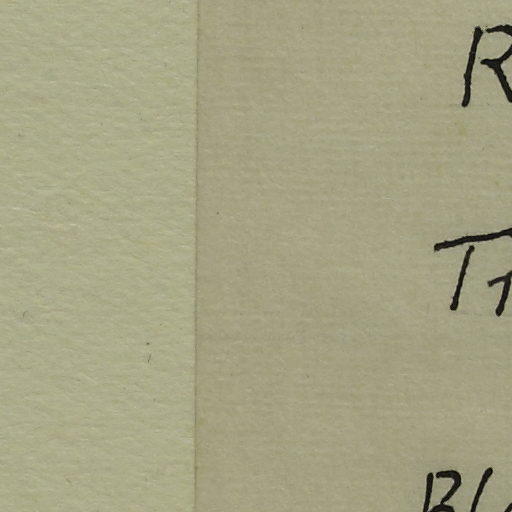 R
Tr
Bl